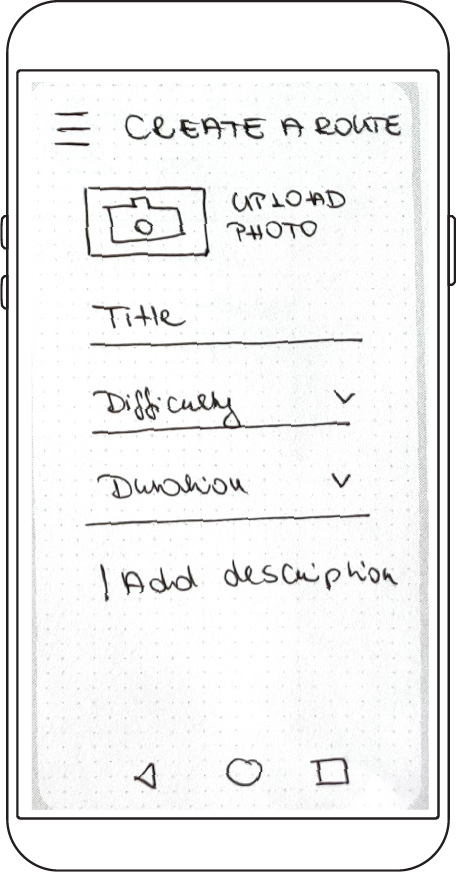 CREATE A ROUTE
UPLOAD
PHOTO
Title
Difficulty
Duration
Add description